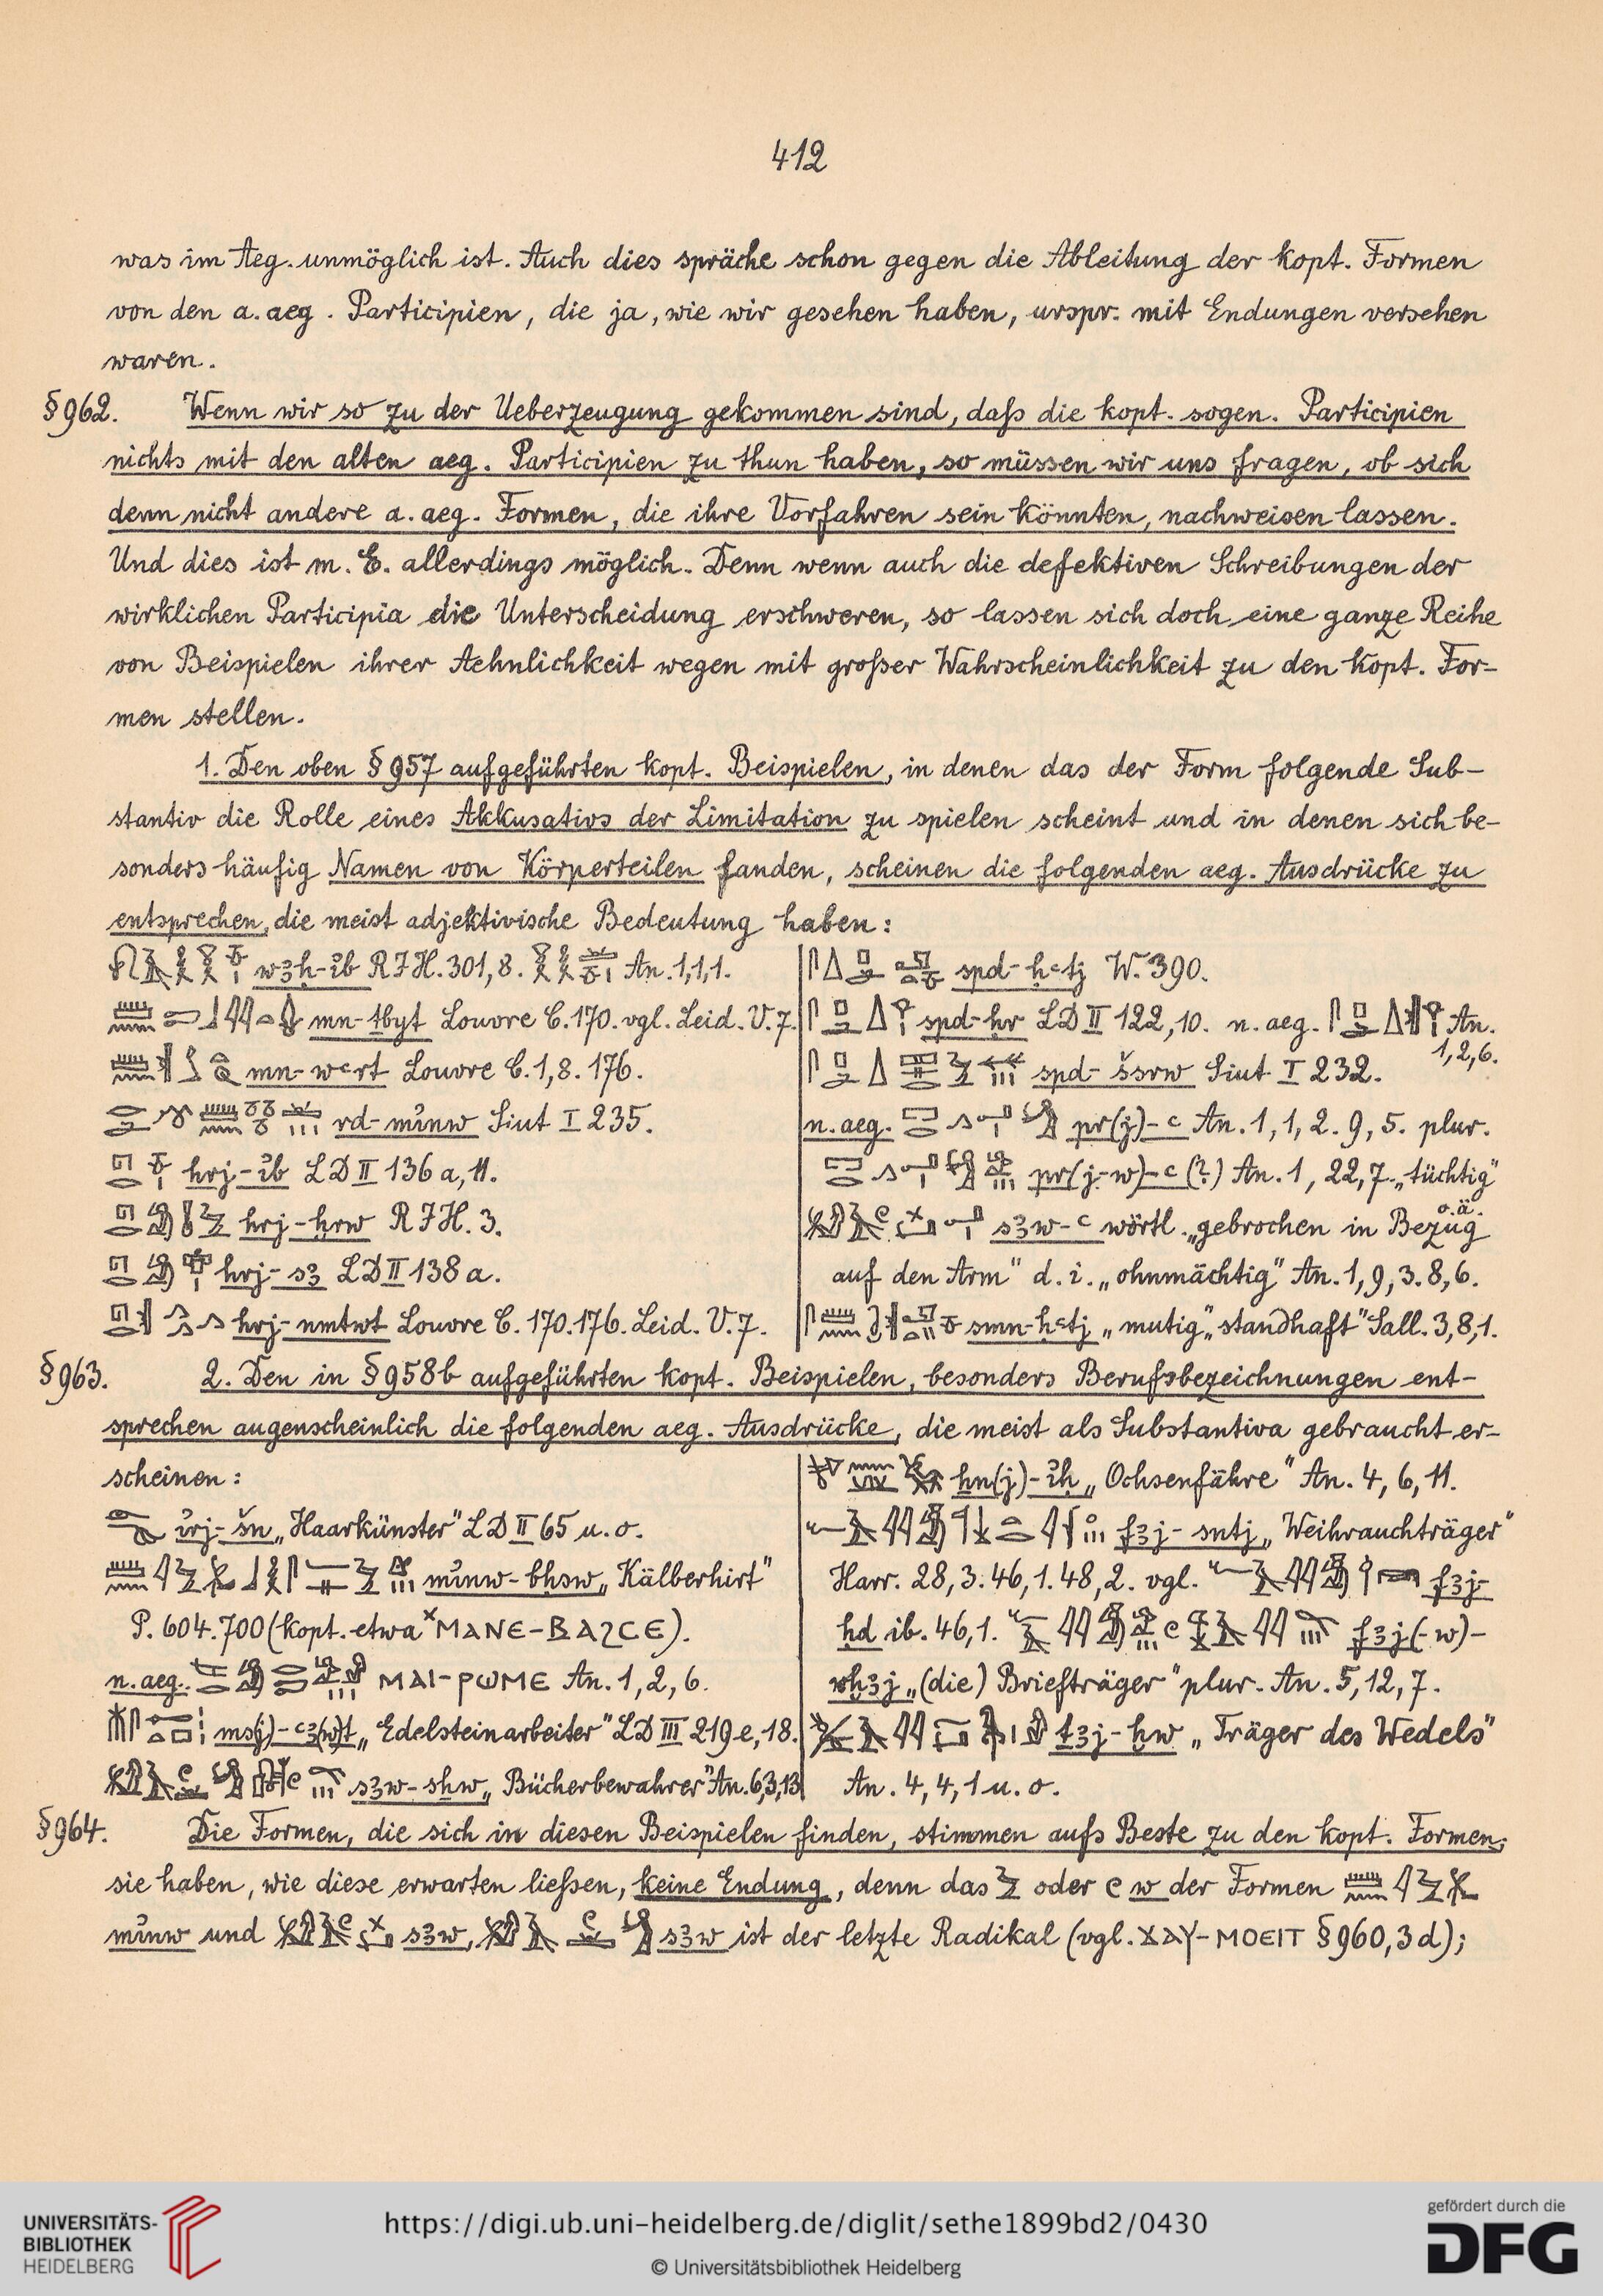 412
was im Aeg. unmöglich ist. Auch dies spräche schon gegen die Ableitung der kopt. Formen
von den a. aeg. Participien, die ja, wie wir gesehen haben, urspr. mit Endungen versehen
waren.
§ 962. Wenn wir so zu der Ueberzeugung gekommen sind, daſs die kopt. sogen. Participien
nichts mit den alten aeg. Participien zu thun haben, so müssen wir uns fragen, ob sich
denn nicht andere a. aeg. Formen, die ihre Vorfahren sein könnten, nachweisen lassen.
Und dies ist m. E. allerdings möglich. Denn wenn auch die defektiven Schreibungen der
wirklichen Participia die Unterscheidung erschweren, so lassen sich doch eine ganze Reihe
von Beispielen ihrer Aehnlichkeit wegen mit groſser Wahrscheinlichkeit zu den kopt. For-
men stellen.
1. Den oben § 957 aufgeführten kopt. Beispielen, in denen das der Form folgende Sub-
stantiv die Rolle eines Akkusativs der Limitation zu spielen scheint und in denen sich be-
sonders häufig Namen von Körperteilen fanden, scheinen die folgenden aeg. Ausdrücke zu
entsprechen, die meist adjektivische Bedeutung haben:
wꜣḥ-ı͗b RIH. 301,8. An. 1,1,1.
mn-ṯbyt Louvre C. 170. vgl. Leid. V. 7.
mn-wꜥrt Louvre C. 1, 8. 176.
rd-mı͗nw Siut I 235.
hrj-ı͗b LD II 136 a, 11.
hrj-hrw RIH. 3.
hrj-sꜣ LD II 138 a.
hrj-nmtwt Louvre C. 170. 176. Leid. V. 7.
spd-ḥꜥtj W. 390.
spd-ḥr LD II 122, 10. n. aeg. An.
1, 2, 6.
spd-šsrw Siut I 232.
n. aeg. pr(j)-ꜥ An. 1, 1, 2. 9, 5. plur.
pr(j-w)-ꜥ (?) An. 1, 22, 7. „tüchtig"
o. ä.
sꜣw-ꜥ wörtl. „gebrochen in Bezug
auf den Arm" d. i. „ohnmächtig" An. 1, 9, 3. 8, 6.
smn-ḥꜥtj „mutig", „standhaft" Sall. 3, 8, 1.
§ 963. 2. Den in § 958 b aufgeführten kopt. Beispielen, besonders Berufsbezeichnungen ent-
sprechen augenscheinlich die folgenden aeg. Ausdrücke, die meist als Substantiva gebraucht er-
scheinen:
ı͗rj-šn „Haarkünster" LD II 65 u. o.
mı͗nw-bḥsw „Kälberhirt"
P. 604. 700 (kopt. etwa ˣⲘⲀⲚⲈ-ⲂⲀϨⲤⲈ).
n. aeg. ⲘⲀⲒ-ⲢⲰⲘⲈ An. 1, 2, 6.
ms(j)-ꜥꜣ(w)t „Edelsteinarbeiter" LD III 219 e, 18.
sꜣw-sḫw „Bücherbewahrer" An. 6, 3, 13
ḫn(j)-ı͗ḥ „Ochsenfähre" An. 4, 6, 11.
fꜣj-snṯj „Weihrauchträger"
Harr. 28, 3. 46, 1. 48, 2. vgl. fꜣj-
ḥḏ ib. 46, 1. fꜣj(-w)-
wḫꜣj „(die) Briefträger" plur. An. 5, 12, 7.
ṯꜣj-ḫw „Träger des Wedels"
An. 4, 4, 1 u. o.
§ 964. Die Formen, die sich in diesen Beispielen finden, stimmen aufs Beste zu den kopt. Formen;
sie haben, wie diese erwarten lieſsen, keine Endung, denn das oder w der Formen
mı͗nw und sꜣw, sꜣw ist der letzte Radikal (vgl. ⲬⲀⲨ-ⲘⲞⲈⲒⲦ § 960, 3 d);
UNIVERSITÄTS-
BIBLIOTHEK
HEIDELBERG
https://digi.ub.uni-heidelberg.de/diglit/sethe1899bd2/0430
© Universitätsbibliothek Heidelberg
gefördert durch die
DFG